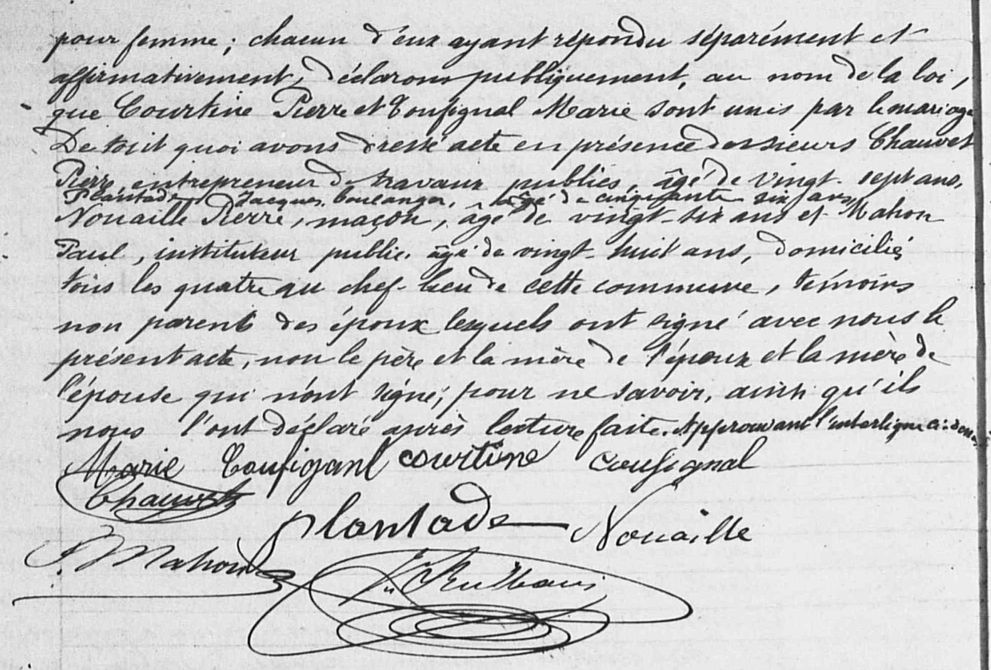 pour femme ; chacun d'eux ayant répondu séparément et
affirmativement, déclarons publiquement, au nom de la loi,
que Courtine Pierre et Coufignal Marie sont unis par le mariage
De tout quoi avons dressé acte en présence des sieurs Chauvet
Pierre, entrepreneur de travaux publics, âgé de vingt-sept ans,
Plantade Jacques, boulanger, âgé de cinquante six ans
Nouaille Pierre, maçon, âgé de vingt-six ans et Mahon
Paul, instituteur public, âgé de vingt-huit ans, domiciliés
tous les quatre au chef-lieu de cette commune, témoins
non parents des époux lesquels ont signé avec nous le
présent acte, non le père et la mère de l'époux et la mère de
l'épouse qui n'ont signé, pour ne savoir, ainsi qu'ils
nous l'ont déclaré après lecture faite. Approuvant l'interligne ci-dessus
Marie Coufiganl courtine coufignal
Chauvet
plantade Nouaille
P Mahon